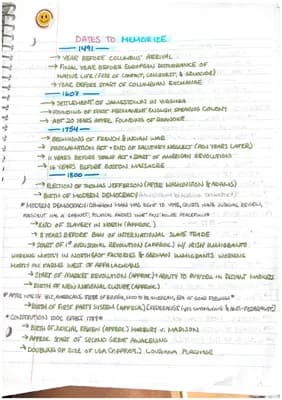 DATES TO MEMORIZE
1491
→ YEAR BEFORE COLUMBUS' ARRIVAL
→ FINAL YEAR BEFORE EUROPEAN DISTURBANCE OF
NATIVE LIFE (PRE OF CONTACT, CONQUEST, & GENOCIDE)
→ YEAR BEFORE START OF COLUMBIAN EXCHANGE
1607
→ SETTLEMENT OF JAMESTOWN IN VIRGINIA
→ FOUNDING OF FIRST PERMANENT ENGLISH SPEAKING COLONY
→ ABT 20 YEARS AFTER FOUNDING OF ROANOKE
1754
→ BEGINNING OF FRENCH & INDIAN WAR
→ PROCLAMATION ACT + END OF SALUTARY NEGLECT (A FEW YEARS LATER)
→ 11 YEARS BEFORE STAMP ACT + START OF AMERICAN REVOLUTION
→ 16 YEARS BEFORE BOSTON MASSACRE
1800
→ ELECTION OF THOMAS JEFFERSON (AFTER WASHINGTON & ADAMS)
→ BIRTH OF MODERN DEMOCRACY
*MODERN DEMOCRACY: COMMON MAN HAS RIGHT TO VOTE, COURTS HAVE JUDICIAL REVIEW,
PRESIDENT HAS A CABINET, POLITICAL PARTIES
→ END OF SLAVERY IN NORTH (APPROX.)
→ 8 YEARS BEFORE BAN OF INTERNATIONAL SLAVE TRADE
→ START OF 1ST INDUSTRIAL REVOLUTION (APPROX.) W/ IRISH IMMIGRANTS
WORKING MOSTLY IN NORTHEAST FACTORIES & GERMAN IMMIGRANTS WORKING
MOSTLY ON FARMS WEST OF APPALACHIANS
→ START OF MARKET REVOLUTION (APPROX.) + ABILITY TO PARTAKE IN DISTANT MARKETS
→ BIRTH OF NEW NATIONAL CULTURE (APPROX.)
AFTER WAR OF 1812, AMERICANS
→ BIRTH OF FIRST PARTY SYSTEM (APPROX.)
*CONSTITUTION DOES EXIST 1789*
→ BIRTH OF JUDICIAL REVIEW (APPROX.) MARBURY V. MADISON
→ APPROX. START OF SECOND GREAT AWAKENING
→ DOUBLING OF SIZE OF USA (APPROX.) LOUISIANA PURCHASE